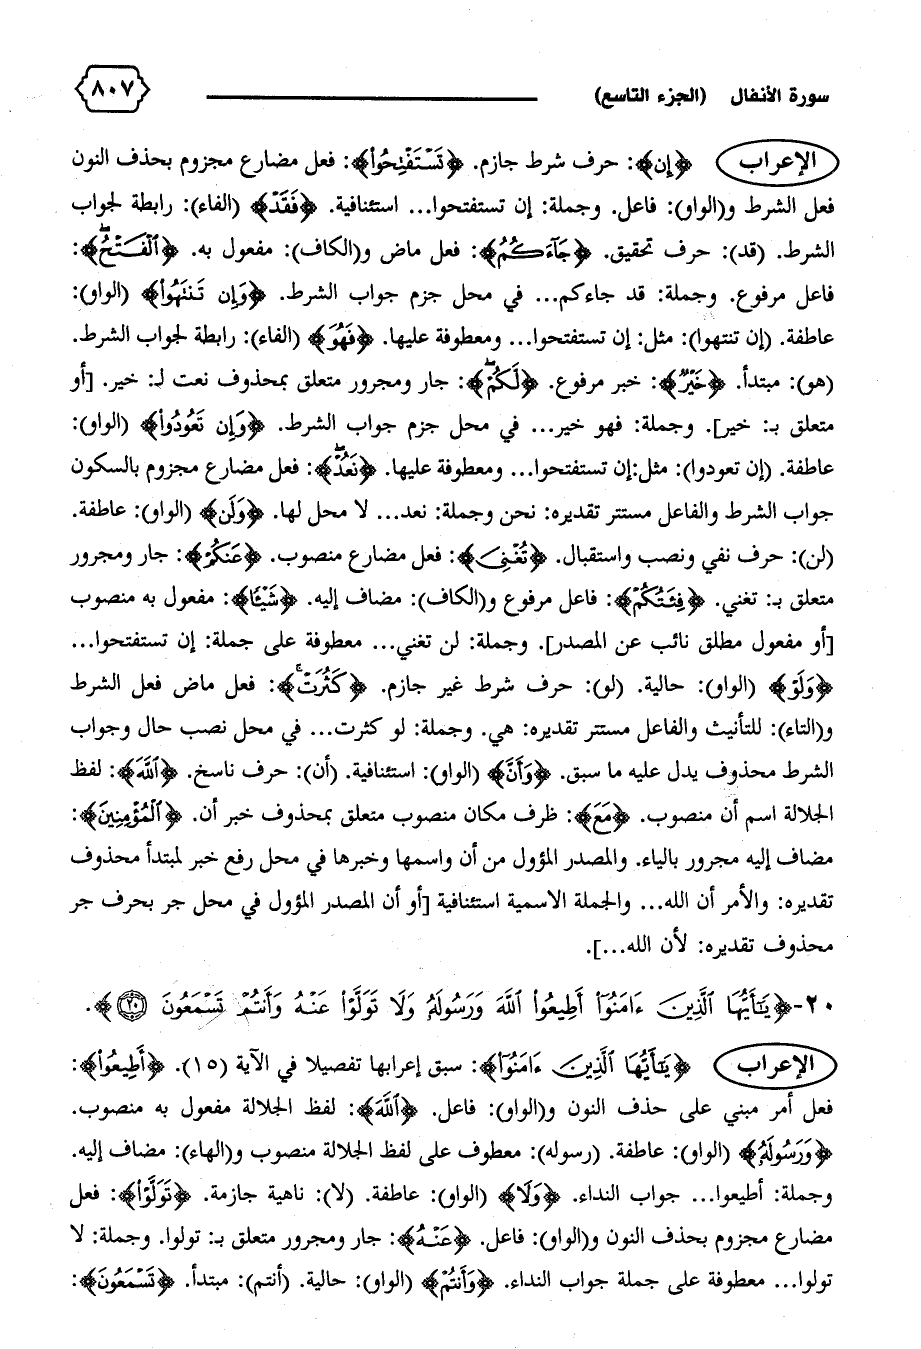 سورة الأنفال (الجزء التاسع) ٨٠٧
الإعراب ﴿إن﴾: حرف شرط جازم. ﴿تَسْتَفْتِحُوا۟﴾: فعل مضارع مجزوم بحذف النون
فعل الشرط و(الواو): فاعل. وجملة: إن تستفتحوا... استئنافية. ﴿فَقَدْ﴾ (الفاء): رابطة لجواب
الشرط. (قد): حرف تحقيق. ﴿جَآءَكُمُ﴾: فعل ماض و(الكاف): مفعول به. ﴿ٱلْفَتْحُ ۖ﴾:
فاعل مرفوع. وجملة: قد جاءكم... في محل جزم جواب الشرط. ﴿وَإِن تَنتَهُوا۟﴾ (الواو):
عاطفة. (إن تنتهوا): مثل: إن تستفتحوا... ومعطوفة عليها. ﴿فَهُوَ﴾ (الفاء): رابطة لجواب الشرط.
(هو): مبتدأ. ﴿خَيْرٌ﴾: خبر مرفوع. ﴿لَكُمْ ۖ﴾: جار ومجرور متعلق بمحذوف نعت لـ: خير. [أو
متعلق بـ: خير]. وجملة: فهو خير... في محل جزم جواب الشرط. ﴿وَإِن تَعُودُوا۟﴾ (الواو):
عاطفة. (إن تعودوا): مثل:إن تستفتحوا... ومعطوفة عليها. ﴿نَعُدْ ۖ﴾: فعل مضارع مجزوم بالسكون
جواب الشرط والفاعل مستتر تقديره: نحن وجملة: نعد... لا محل لها. ﴿وَلَن﴾ (الواو): عاطفة.
(لن): حرف نفي ونصب واستقبال. ﴿تُغْنِىَ﴾: فعل مضارع منصوب. ﴿عَنكُمْ﴾: جار ومجرور
متعلق بـ: تغني. ﴿فِئَتُكُمْ﴾: فاعل مرفوع و(الكاف): مضاف إليه. ﴿شَيْـًٔا﴾: مفعول به منصوب
[أو مفعول مطلق نائب عن المصدر]. وجملة: لن تغني... معطوفة على جملة: إن تستفتحوا...
﴿وَلَوْ﴾ (الواو): حالية. (لو): حرف شرط غير جازم. ﴿كَثُرَتْ﴾: فعل ماض فعل الشرط
و(التاء): للتأنيث والفاعل مستتر تقديره: هي. وجملة: لو كثرت... في محل نصب حال وجواب
الشرط محذوف يدل عليه ما سبق. ﴿وَأَنَّ﴾ (الواو): استئنافية. (أن): حرف ناسخ. ﴿ٱللَّهَ﴾: لفظ
الجلالة اسم أن منصوب. ﴿مَعَ﴾: ظرف مكان منصوب متعلق بمحذوف خبر أن. ﴿ٱلْمُؤْمِنِينَ﴾:
مضاف إليه مجرور بالياء. والمصدر المؤول من أن واسمها وخبرها في محل رفع خبر لمبتدأ محذوف
تقديره: والأمر أن الله... والجملة الاسمية استئنافية [أو أن المصدر المؤول في محل جر بحرف جر
محذوف تقديره: لأن الله...].
٢٠-﴿يَـٰٓأَيُّهَا ٱلَّذِينَ ءَامَنُوٓا۟ أَطِيعُوا۟ ٱللَّهَ وَرَسُولَهُۥ وَلَا تَوَلَّوْا۟ عَنْهُ وَأَنتُمْ تَسْمَعُونَ ٢٠﴾.
الإعراب ﴿يَـٰٓأَيُّهَا ٱلَّذِينَ ءَامَنُوٓا۟﴾: سبق إعرابها تفصيلا في الآية (١٥). ﴿أَطِيعُوا۟﴾:
فعل أمر مبني على حذف النون و(الواو): فاعل. ﴿ٱللَّهَ﴾: لفظ الجلالة مفعول به منصوب.
﴿وَرَسُولَهُۥ﴾ (الواو): عاطفة. (رسوله): معطوف على لفظ الجلالة منصوب و(الهاء): مضاف إليه.
وجملة: أطيعوا... جواب النداء. ﴿وَلَا﴾ (الواو): عاطفة. (لا): ناهية جازمة. ﴿تَوَلَّوْا۟﴾: فعل
مضارع مجزوم بحذف النون و(الواو): فاعل. ﴿عَنْهُ﴾: جار ومجرور متعلق بـ: تولوا. وجملة: لا
تولوا... معطوفة على جملة جواب النداء. ﴿وَأَنتُمْ﴾ (الواو): حالية. (أنتم): مبتدأ. ﴿تَسْمَعُونَ﴾: